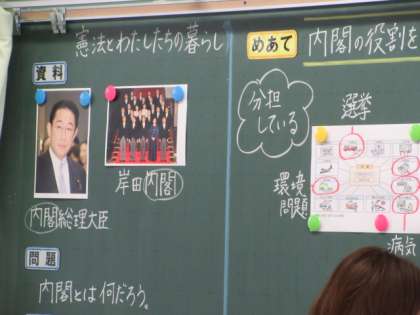 憲法とわたしたちの暮らし
資料
岸田内閣
内閣総理大臣
問題
内閣とは何だろう。
めあて
内閣の役割を
分担
している
選挙
環境
問題
病気